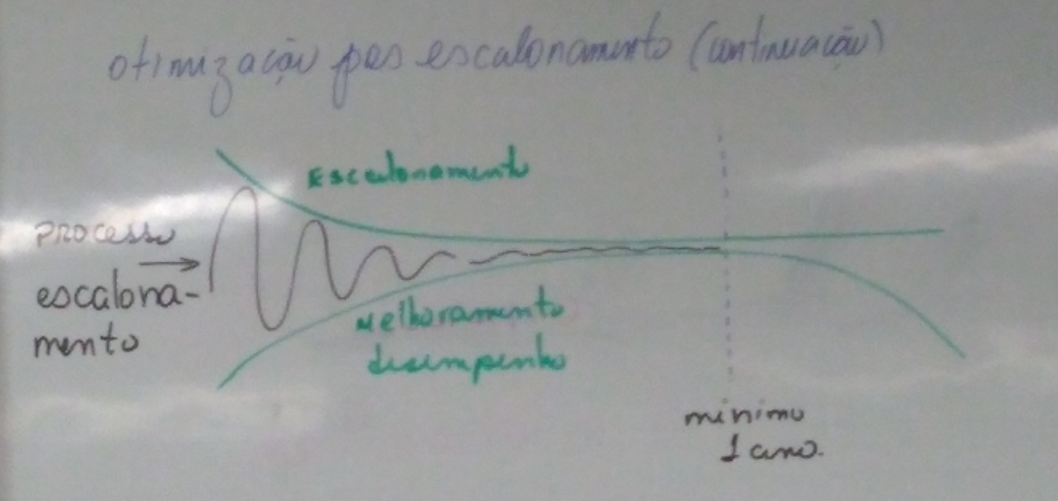 otimização pes escalonamento (continuação)
Escalonamento
processo
escalona-
mento
Melhoramento
desempenho
minimo
1 ano.